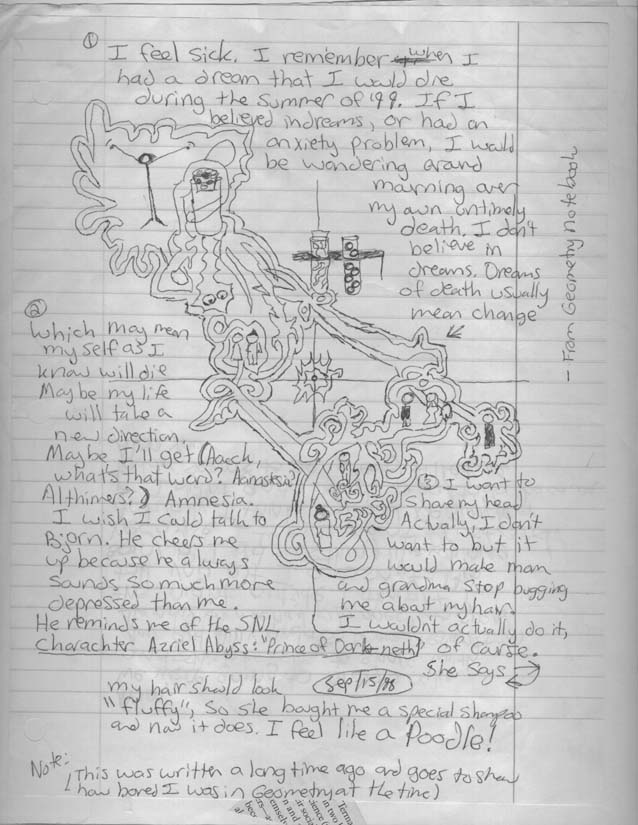 ① I feel sick. I remember when I
had a dream that I would die
during the summer of '99. If I
believed in dreams, or had an
anxiety problem, I would
be wondering around
mourning over
my own untimely
death. I don't
believe in
dreams. Dreams
of death usually
mean change
② which may mean
my self as I
know will die
Maybe my life
will take a
new direction.
Maybe I'll get (Aacch,
what's that word?
Althimers?) Amnesia.
I wish I could talk to
Bjorn. He cheers me
up because he always
sounds so much more
depressed than me.
He reminds me of the SNL
Charachter Azriel Abyss: "Prince of Dark-neth"
③ I want to
shave my head
Actually, I don't
want to but it
would make mom
and grandma stop bugging
me about my hair.
I wouldn't actually do it,
of course.
She says
my hair should look
"fluffy", so she bought me a special shampoo
and now it does. I feel like a Poodle!
Sep/15/98
Note: (This was written a long time ago and goes to show
how bored I was in Geometry at the time)
— From Geometry Notebook